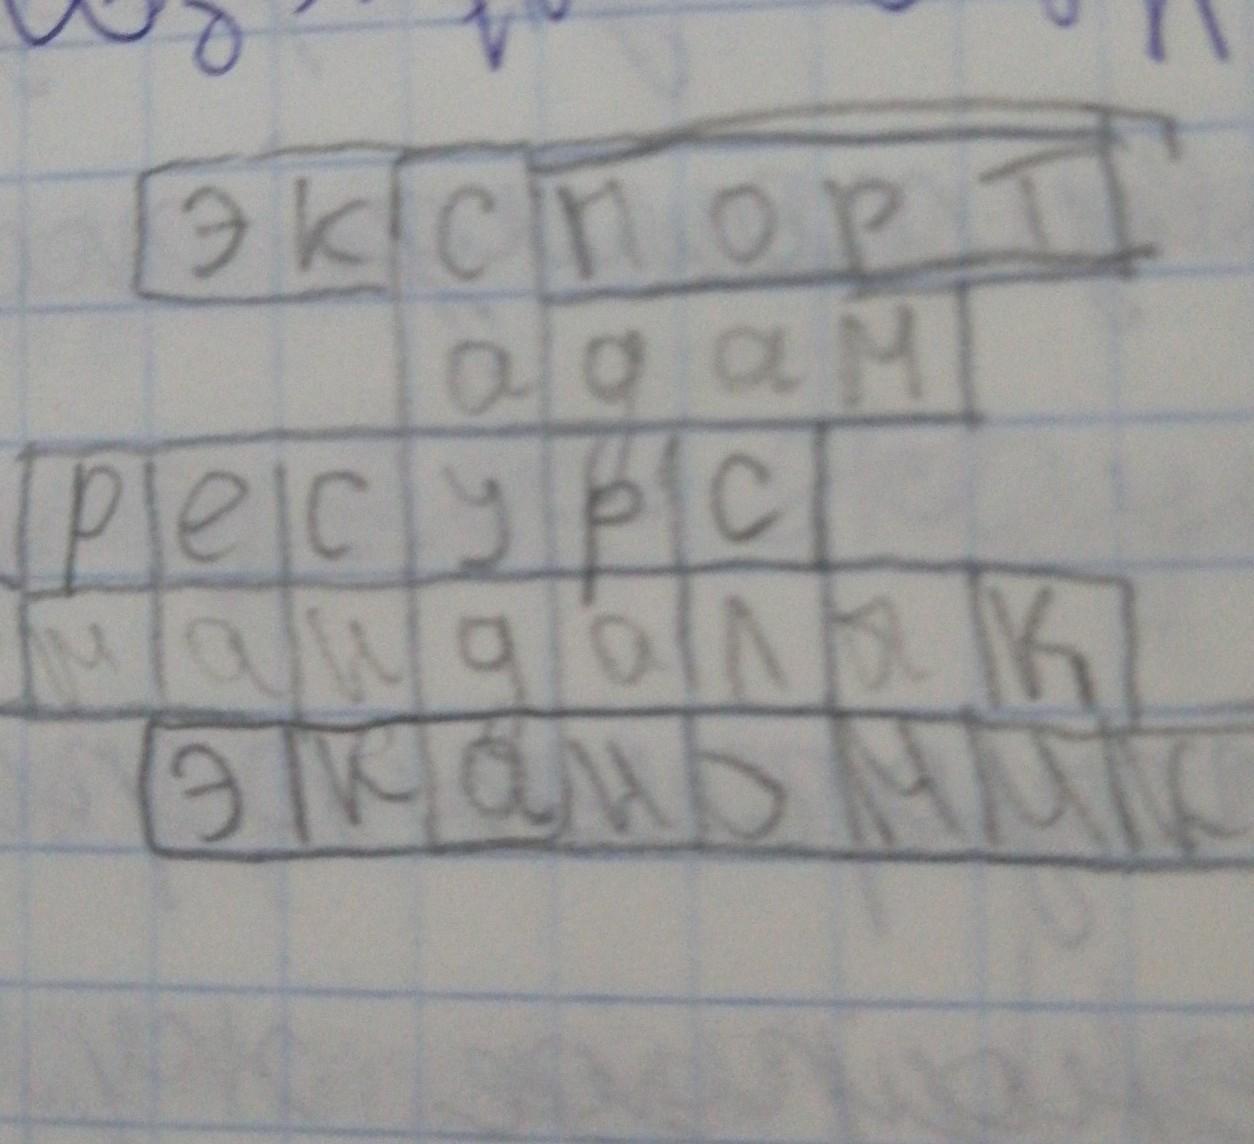 экспорт
адам
ресурс
мандаляк
эканомик